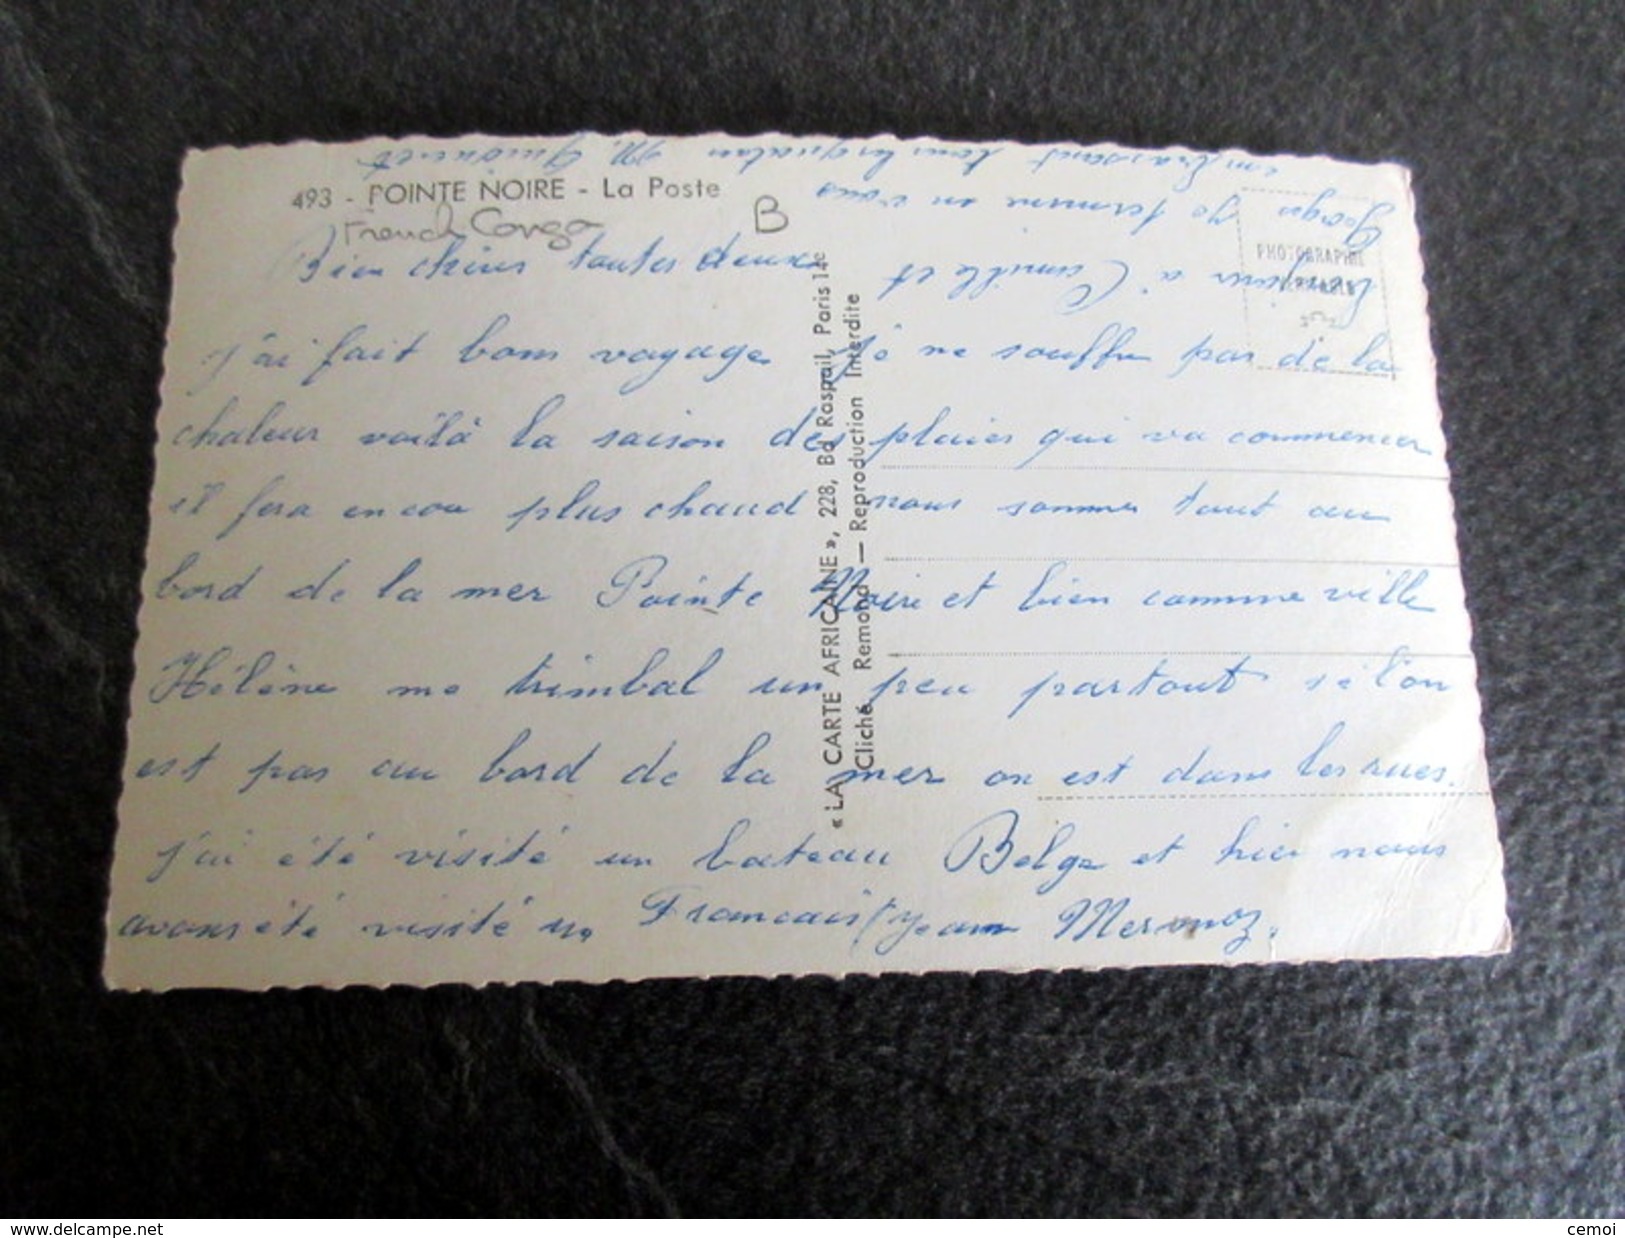 493 - POINTE NOIRE - La Poste
French Congo
B
Bien chères toutes deux
j'ai fait bom voyage je ne souffre pas de la
chaleur voilà la saison des pluies qui va commencer
il fera encore plus chaud nous somme tout au
bord de la mer Pointe Noire et bien comme ville
Hélène me trimbal un peu partout si l'on
est pas au bord de la mer on est dans les rues.
j'ai été visité un bateau Belge et hier nous
avons été visité un Francais (Jean Mermoz.
bonjour a Camille et
Georges je termine en vous
embrassant tous les quatre M.
« LA CARTE AFRICAINE », 228, Bd Raspail, Paris 14e
Cliché Remond — Reproduction Interdite
PHOTOGRAPHIE
VERITABLE
www.delcampe.net
cemoi